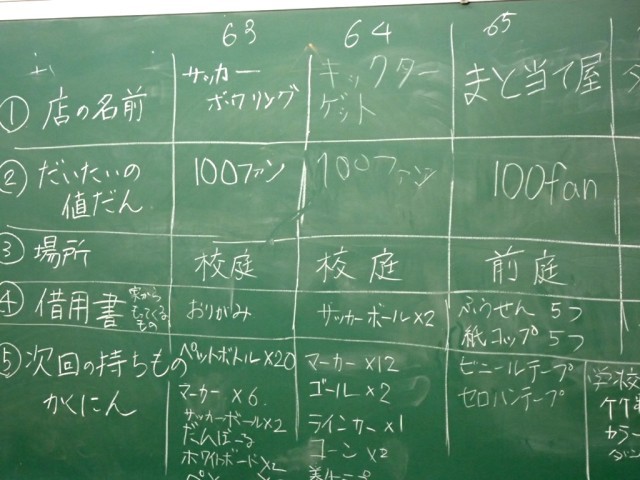 63 64 65
① 店の名前
サッカー
ボウリング
キックター
ゲット
まと当て屋
② だいたいの
値だん
100ファン
100ファン
100fan
③ 場所
校庭
校庭
前庭
④ 借用書
家から
もってくる
もの
おりがみ
サッカーボール×2
ふうせん 5つ
紙コップ 5つ
⑤ 次回の持ちもの
かくにん
ペットボトル×20
マーカー ×6.
サッカーボール×2
だんぼーる
ホワイトボード×2
マーカー ×12
ゴール ×2
ラインカー ×1
コーン ×2
ビニールテープ
セロハンテープ
学校
カラー